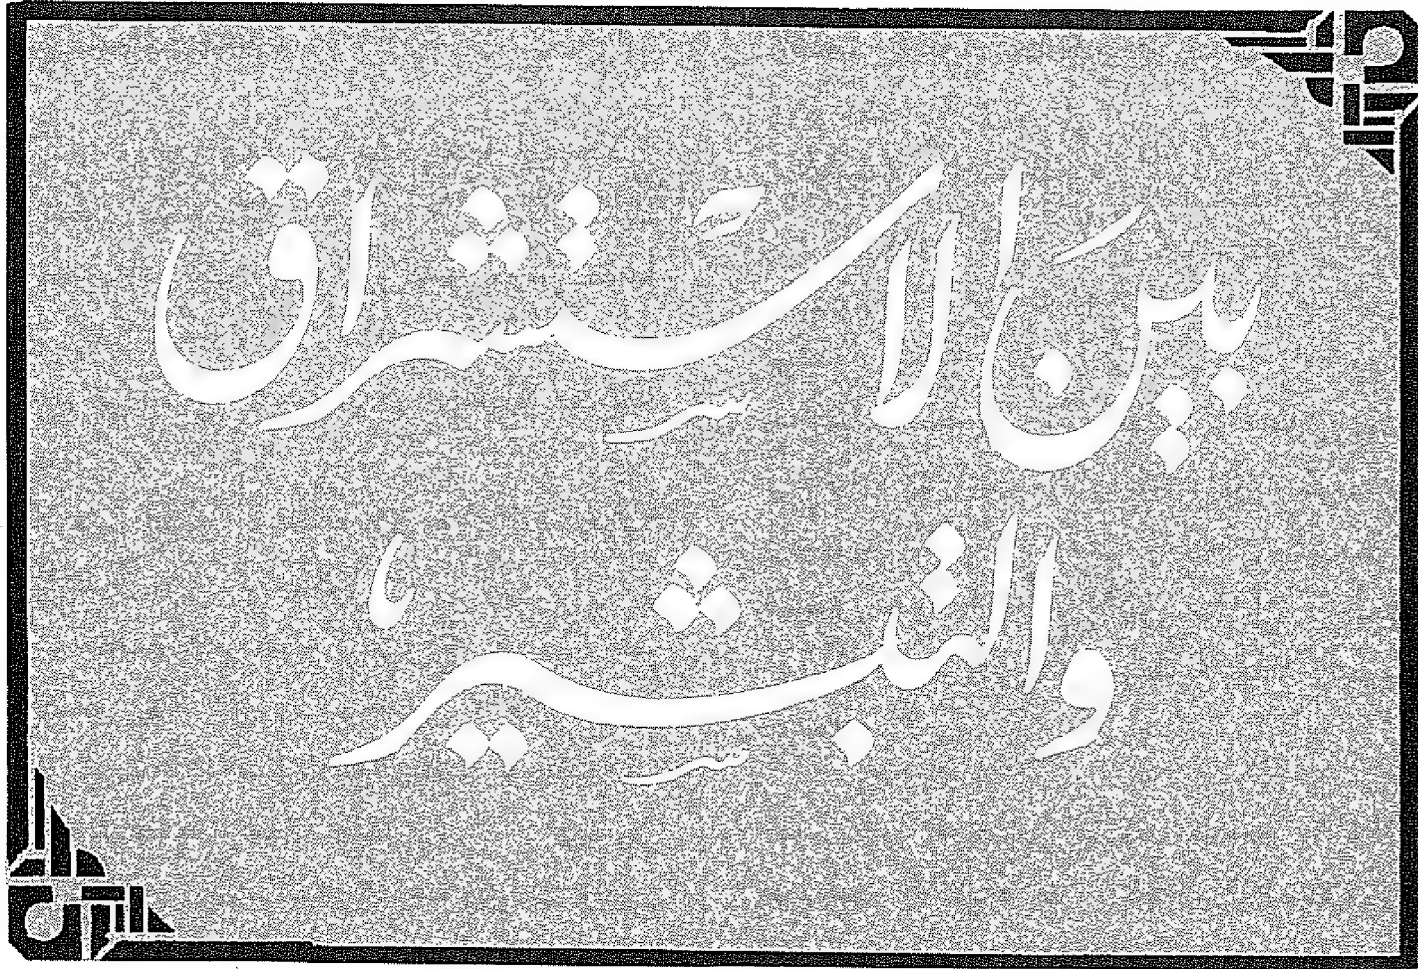 بينَ الاستشراق
والتبشير